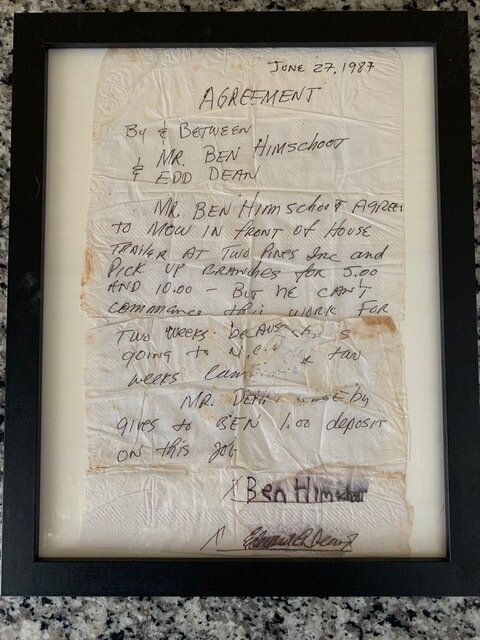 JUNE 27, 1987
AGREEMENT
By & BETWEEN
MR. BEN HIMSCHOOT
& EDD DEAN
MR. BEN HIMSCHOOT AGREE
TO MOW IN FRONT OF HOUSE
TRAILER AT TWO PINES INC and
PICK UP BRANCHES for 5.00
AND 10.00 - BUT HE CAN'T
commence this work FOR
TWO weeks becaus s
going to N.C. two
weeks
MR. DEAN
gives to BEN 1.00 deposit
ON this job
Ben Himschoot